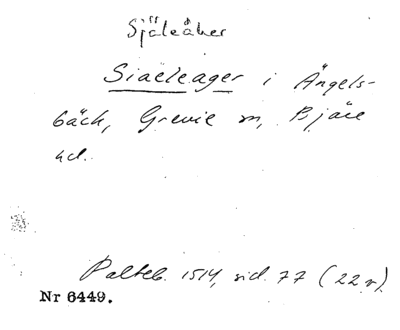 Själaåker
Siaeleager i Ängels-
bäck, Grevie sn, Bjäre
hd.
Palteb. 1514, sid. 77 (22 r).
Nr 6449.